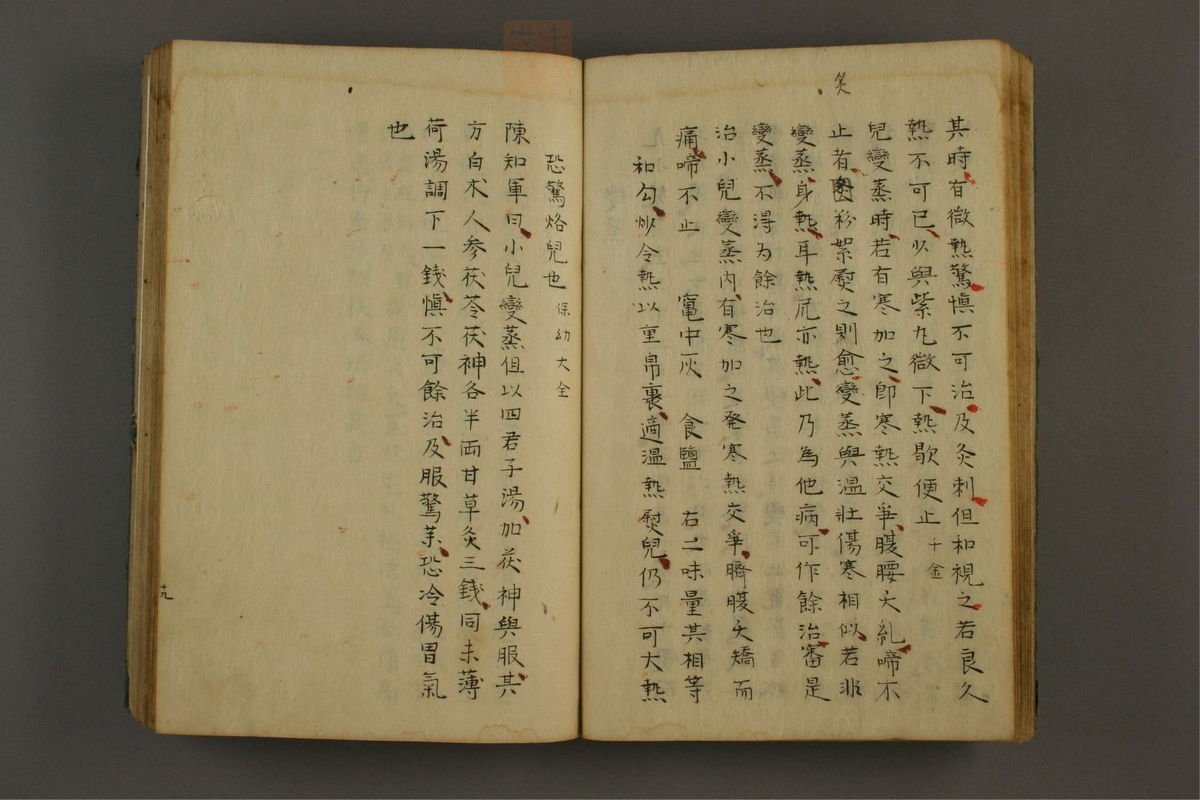 炙
其時有微熱驚愼不可治及灸刺但和視之若良久
熱不可已以與紫丸微下熱歇便止千金
兒變蒸時若有寒加之卽寒熱交爭腹腰夭糺啼不
止者粉絮熨之則愈變蒸與溫壯傷寒相似若非
變蒸身熱耳熱尻亦熱此乃為他病可作餘治審是
變蒸不得為餘治也
治小兒變蒸內有寒加之発寒熱交爭臍腹夭矯而
痛啼不止 竈中灰 食鹽 右二味量其相等
和勾炒令熱以重帛裹適溫熱熨兒仍不可大熱
恐驚烙兒也保幼大全
陳知軍曰小兒變蒸但以四君子湯加茯神與服其
方白朮人参茯苓茯神各半両甘草炙三錢同末薄
荷湯調下一錢愼不可餘治及服驚薬恐冷傷胃氣
也
十九